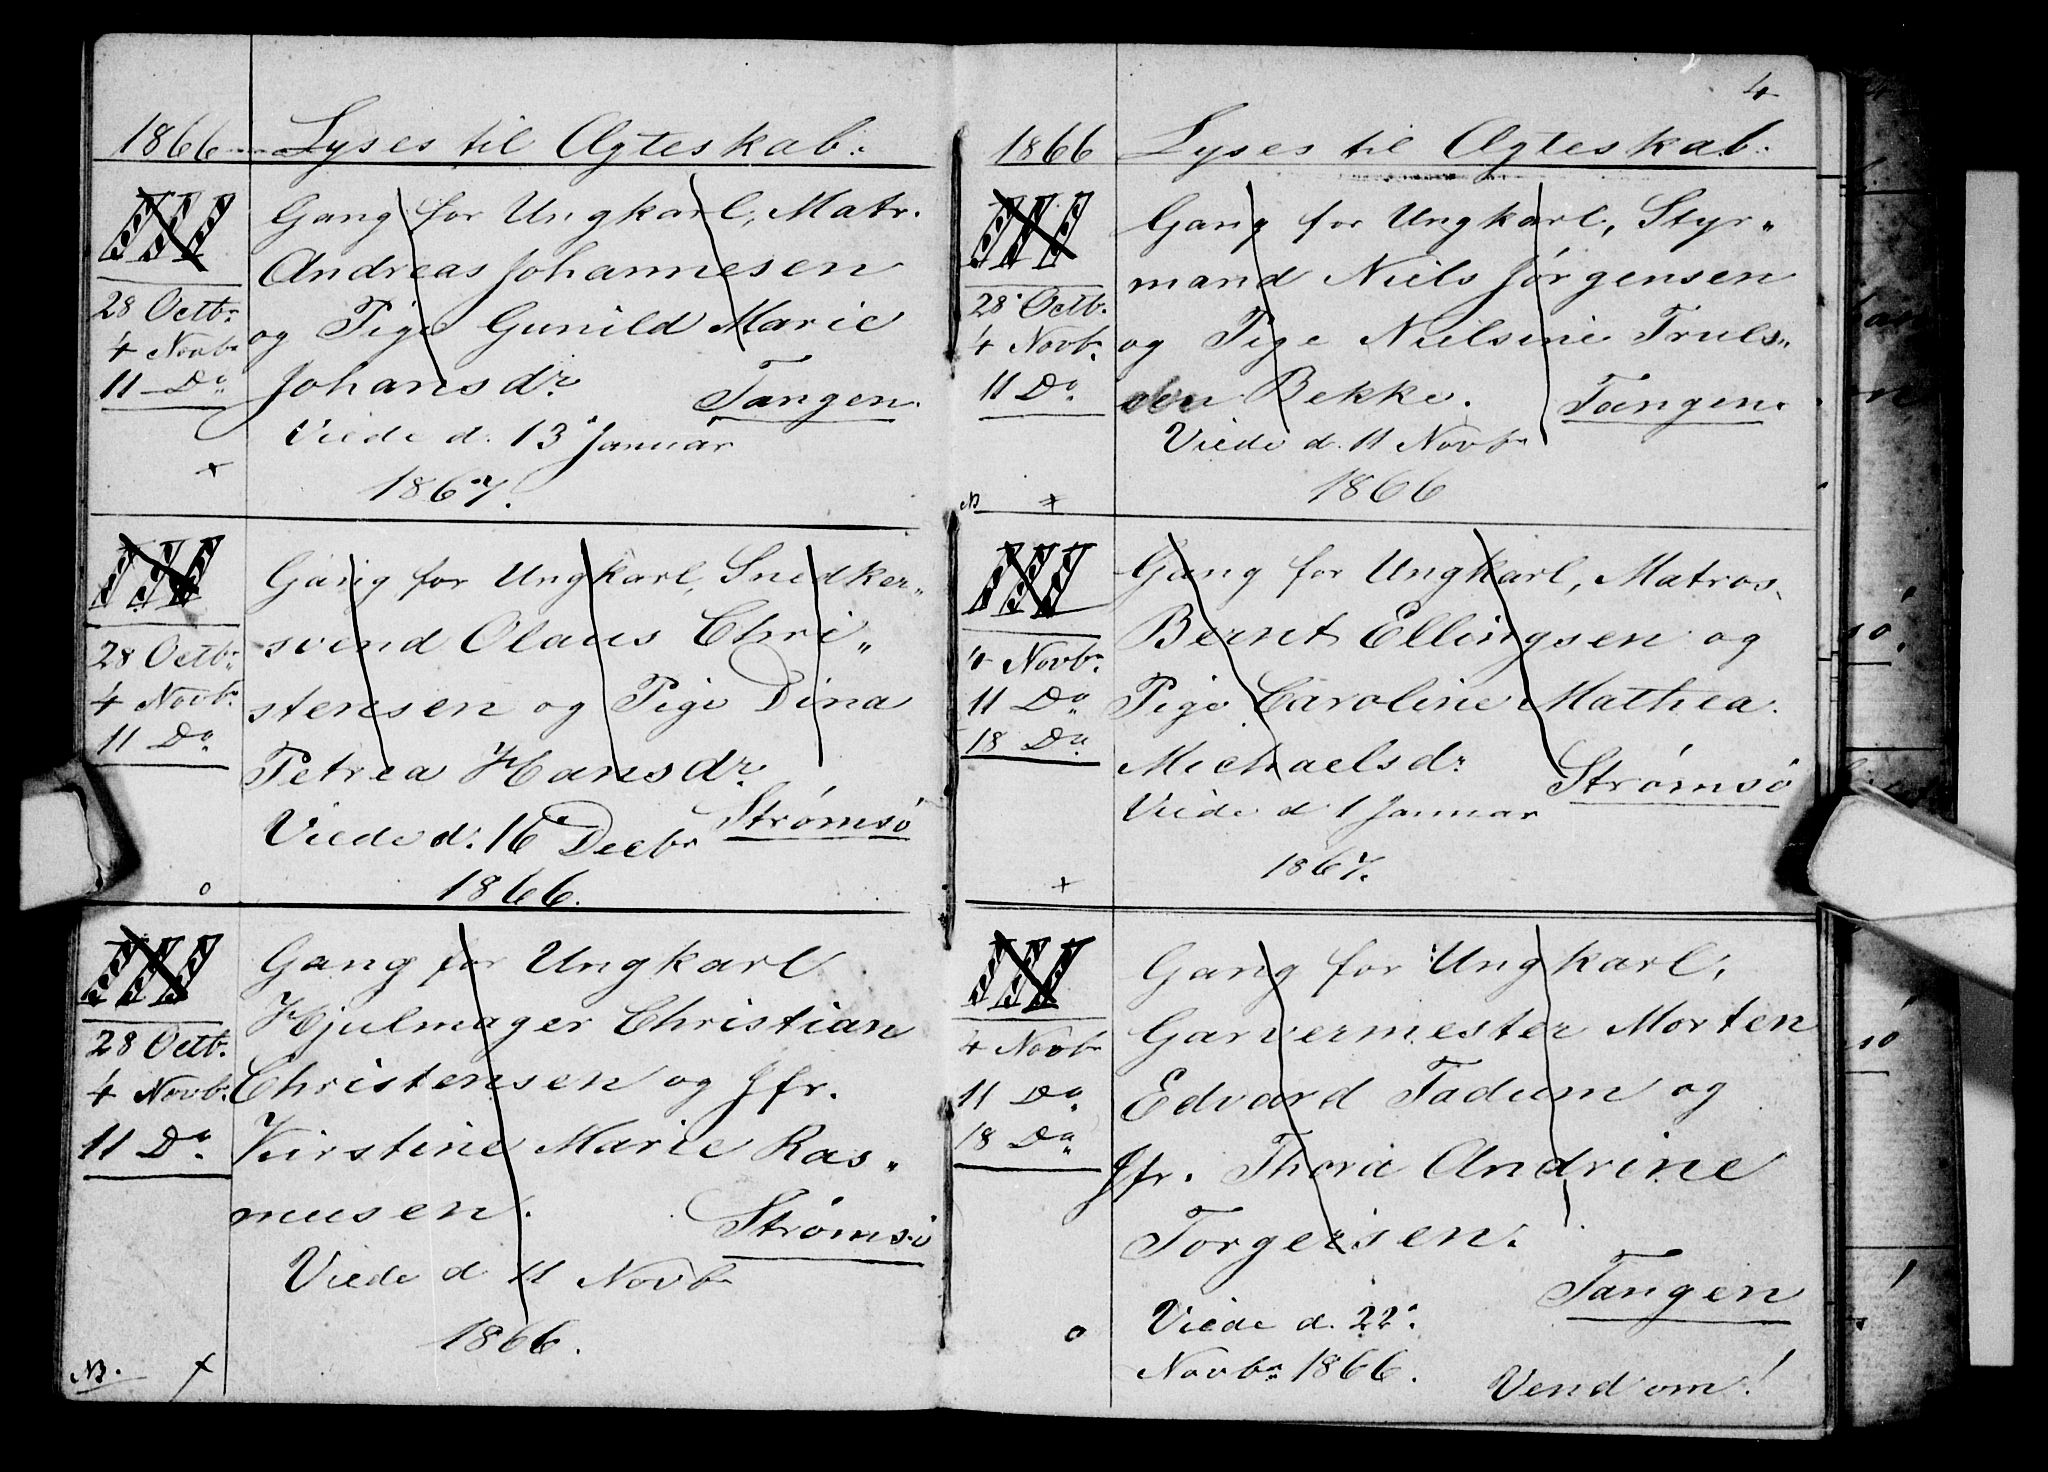 1866 Lyses til Ægteskab.
III Gang for Ungkarl, Matr.
Andreas Johannesen
28 Octbr. og Pige Gunild Marie
4 Novbr
11 Do Johansdr. Tangen.
Viede d. 13 Januar
+
1867.
III Gang for Ungkarl, Snedker„
svend Olaus Chri„
28 Octbr.
4 Novbr. stensen og Pige Dina
11 Do.
Petrea Hansdr.
Viede d. 16 Decbr Strømsö
o 1866.
III Gang for Ungkarl
Hjulmager Christian
28 Octbr.
4 Novbr. Christensen og Jfr.
11 Do. Kirstine Marie Ras„
musen. Strømsö
Viede d 11 Novbr
1866.
NB. +
4
1866 Lyses til Ægteskab.
III Gang for Ungkarl, Styr„
mand Niels Jörgensen
28 Octbr.
4 Novbr. og Pige Nielsine Truls„
11 Do. Bekke. Tangen.
Viede d. 11 Novbr
1866
NB +
III Gang for Ungkarl, Matros
Bernt Ellingsen og
4 Novbr.
11 Do. Pige Caroline Mathea
18 Do. Michaelsdr. Strømsö
Viede d 1 Januar
1867.
+
III Gang for Ungkarl,
Garvermester Morten
4 Novbr
11 Do. Edvard Fadum og
18 Do. Jfr. Thora Andrine
Torgersen.
Tangen
Viede d. 22
o
Novbr. 1866.
Vend om!